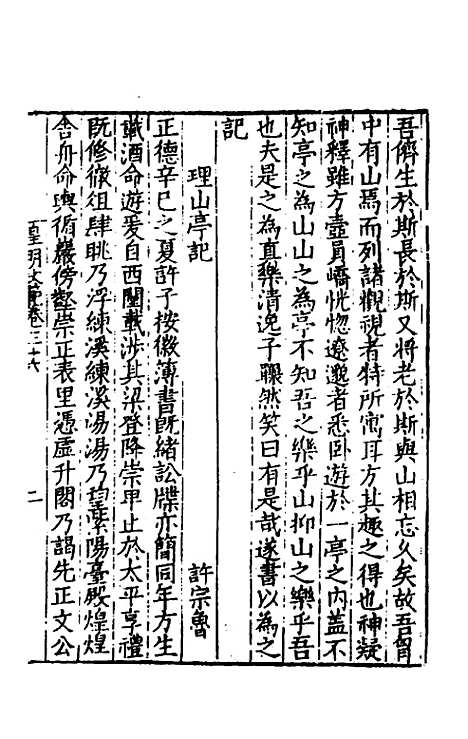 吾儕生於斯長於斯又將老於斯與山相忘久矣故吾胷
中有山焉而列諸觀視者特所寓耳方其趣之得也神凝
神釋雖方壺員嶠恍惚遼邈者悉卧遊於一亭之内盖不
知亭之為山山之為亭不知吾之樂乎山抑山之樂乎吾
也夫是之為真樂清逸子囅然笑曰有是哉遂書以為之
記
理山亭記 許宗魯
正德辛巳之夏許子按徽簿書旣緒訟牒亦簡同年方生
載酒命遊爰自西闉載涉其梁登降崇卑止於太平享禮
旣修徹俎肆眺乃浮練溪練溪湯湯乃望紫陽臺殿煌煌
舎舟命輿循巖傍壑崇正表里憑虛升閣乃謁先正文公
皇明文範卷三十六 二